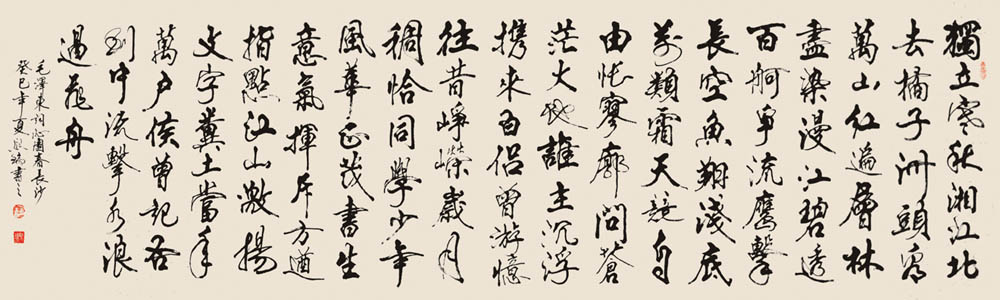 獨立寒秋湘江北
去橘子洲頭看
萬山紅遍層林
盡染漫江碧透
百舸爭流鷹擊
長空魚翔淺底
萬類霜天競自
由悵寥廓問蒼
茫大地誰主沉浮
携來百侣曾游憶
往昔崢嶸歲月
稠恰同學少年
風華正茂書生
意氣揮斥方遒
指點江山激揚
文字糞土當年
萬戶侯曾記否
到中流擊水浪
遏飛舟
毛澤東詞沁園春長沙
癸巳年夏瑞書之